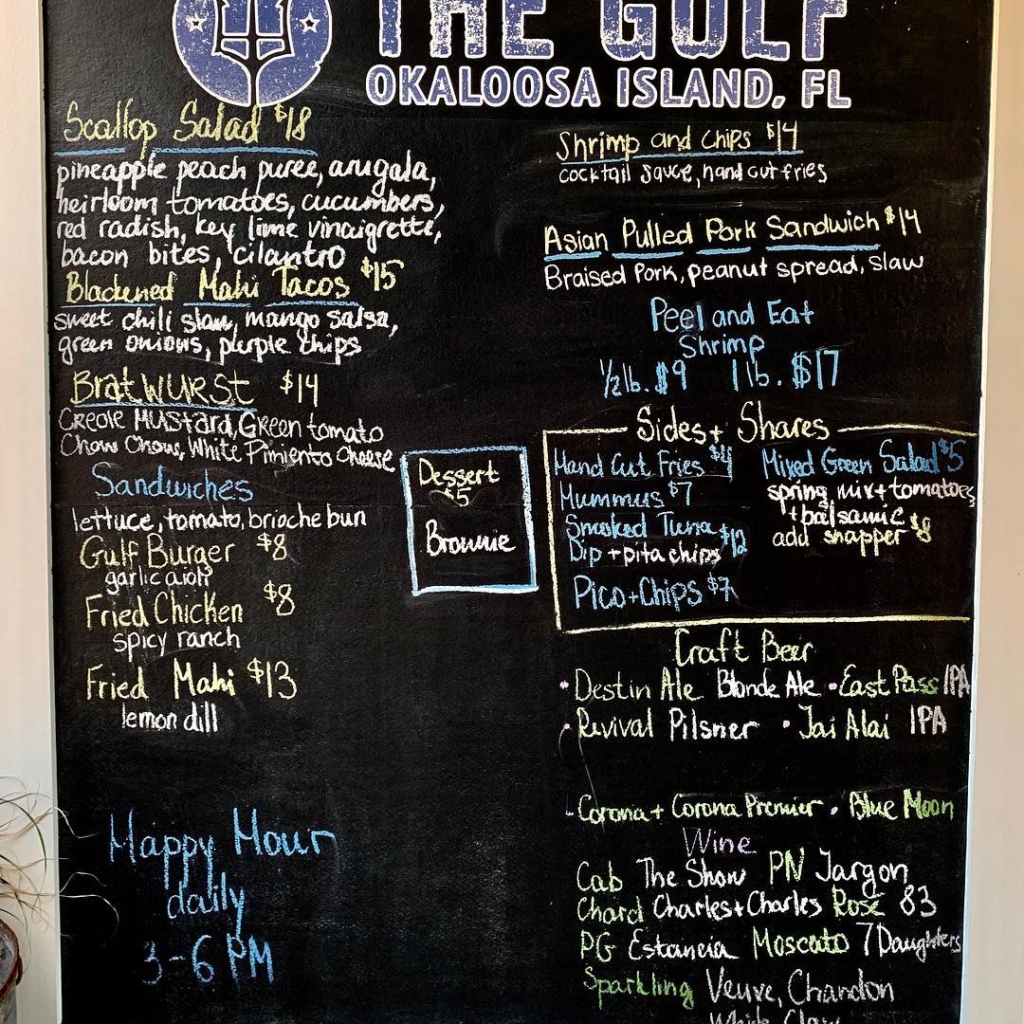 THE GULF
OKALOOSA ISLAND, FL
Scallop Salad $18
pineapple peach puree, arugala,
heirloom tomatoes, cucumbers,
red radish, key lime vinaigrette,
bacon bites, cilantro
Blackened Mahi Tacos $15
sweet chili slaw, mango salsa,
green onions, purple chips
BratWURST $14
Creole MUStard, Green tomato
Chow Chow, White Pimiento Cheese
Sandwiches
lettuce, tomato, brioche bun
Gulf Burger $8
garlic aioli
Fried Chicken $8
spicy ranch
Fried Mahi $13
lemon dill
Happy Hour
daily
3-6 PM
Dessert
$5
Brownie
Shrimp and Chips $14
cocktail sauce, hand cut fries
Asian Pulled Pork Sandwich $14
Braised Pork, peanut spread, slaw
Peel and Eat
Shrimp
1/2 lb. $9 1 lb. $17
Sides + Shares
Hand Cut Fries $4
Hummus $7
Smoked Tuna $12
Dip + pita chips
Pico + Chips $7
Mixed Green Salad $5
spring mix + tomatoes
+ balsamic
add snapper $8
Craft Beer
• Destin Ale Blonde Ale • East Pass IPA
• Revival Pilsner • Jai Alai IPA
- Corona + Corona Premier • Blue Moon
Wine
Cab The Show PN Jargon
Chard Charles + Charles Rosé 83
PG Estancia Moscato 7 Daughters
Sparkling Veuve, Chandon
White Claw